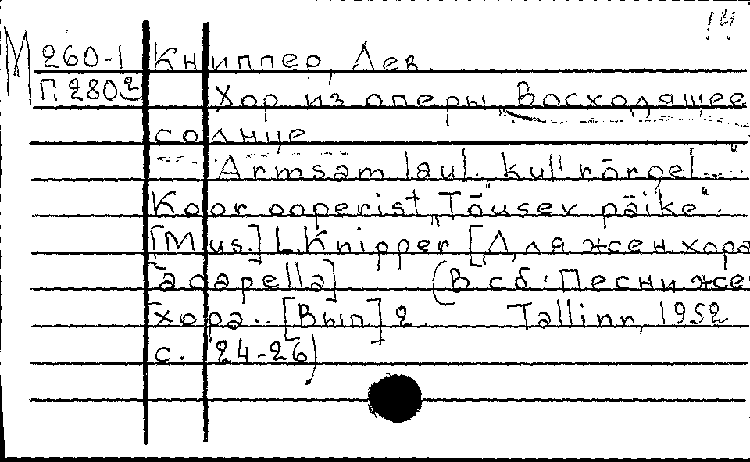 14
М 260-1 Книппер, Лев
П 2802 Хор из оперы „Восходящее
солнце
"Armsam laul kull nõrgel..."
Koor ooperist „Tõusev päike".
[Mus.] L. Knipper [Для жен хора
acapella] (В сб: Песни же
хора.. [Вып.] 2 Tallinn, 1952
с. 24-26)